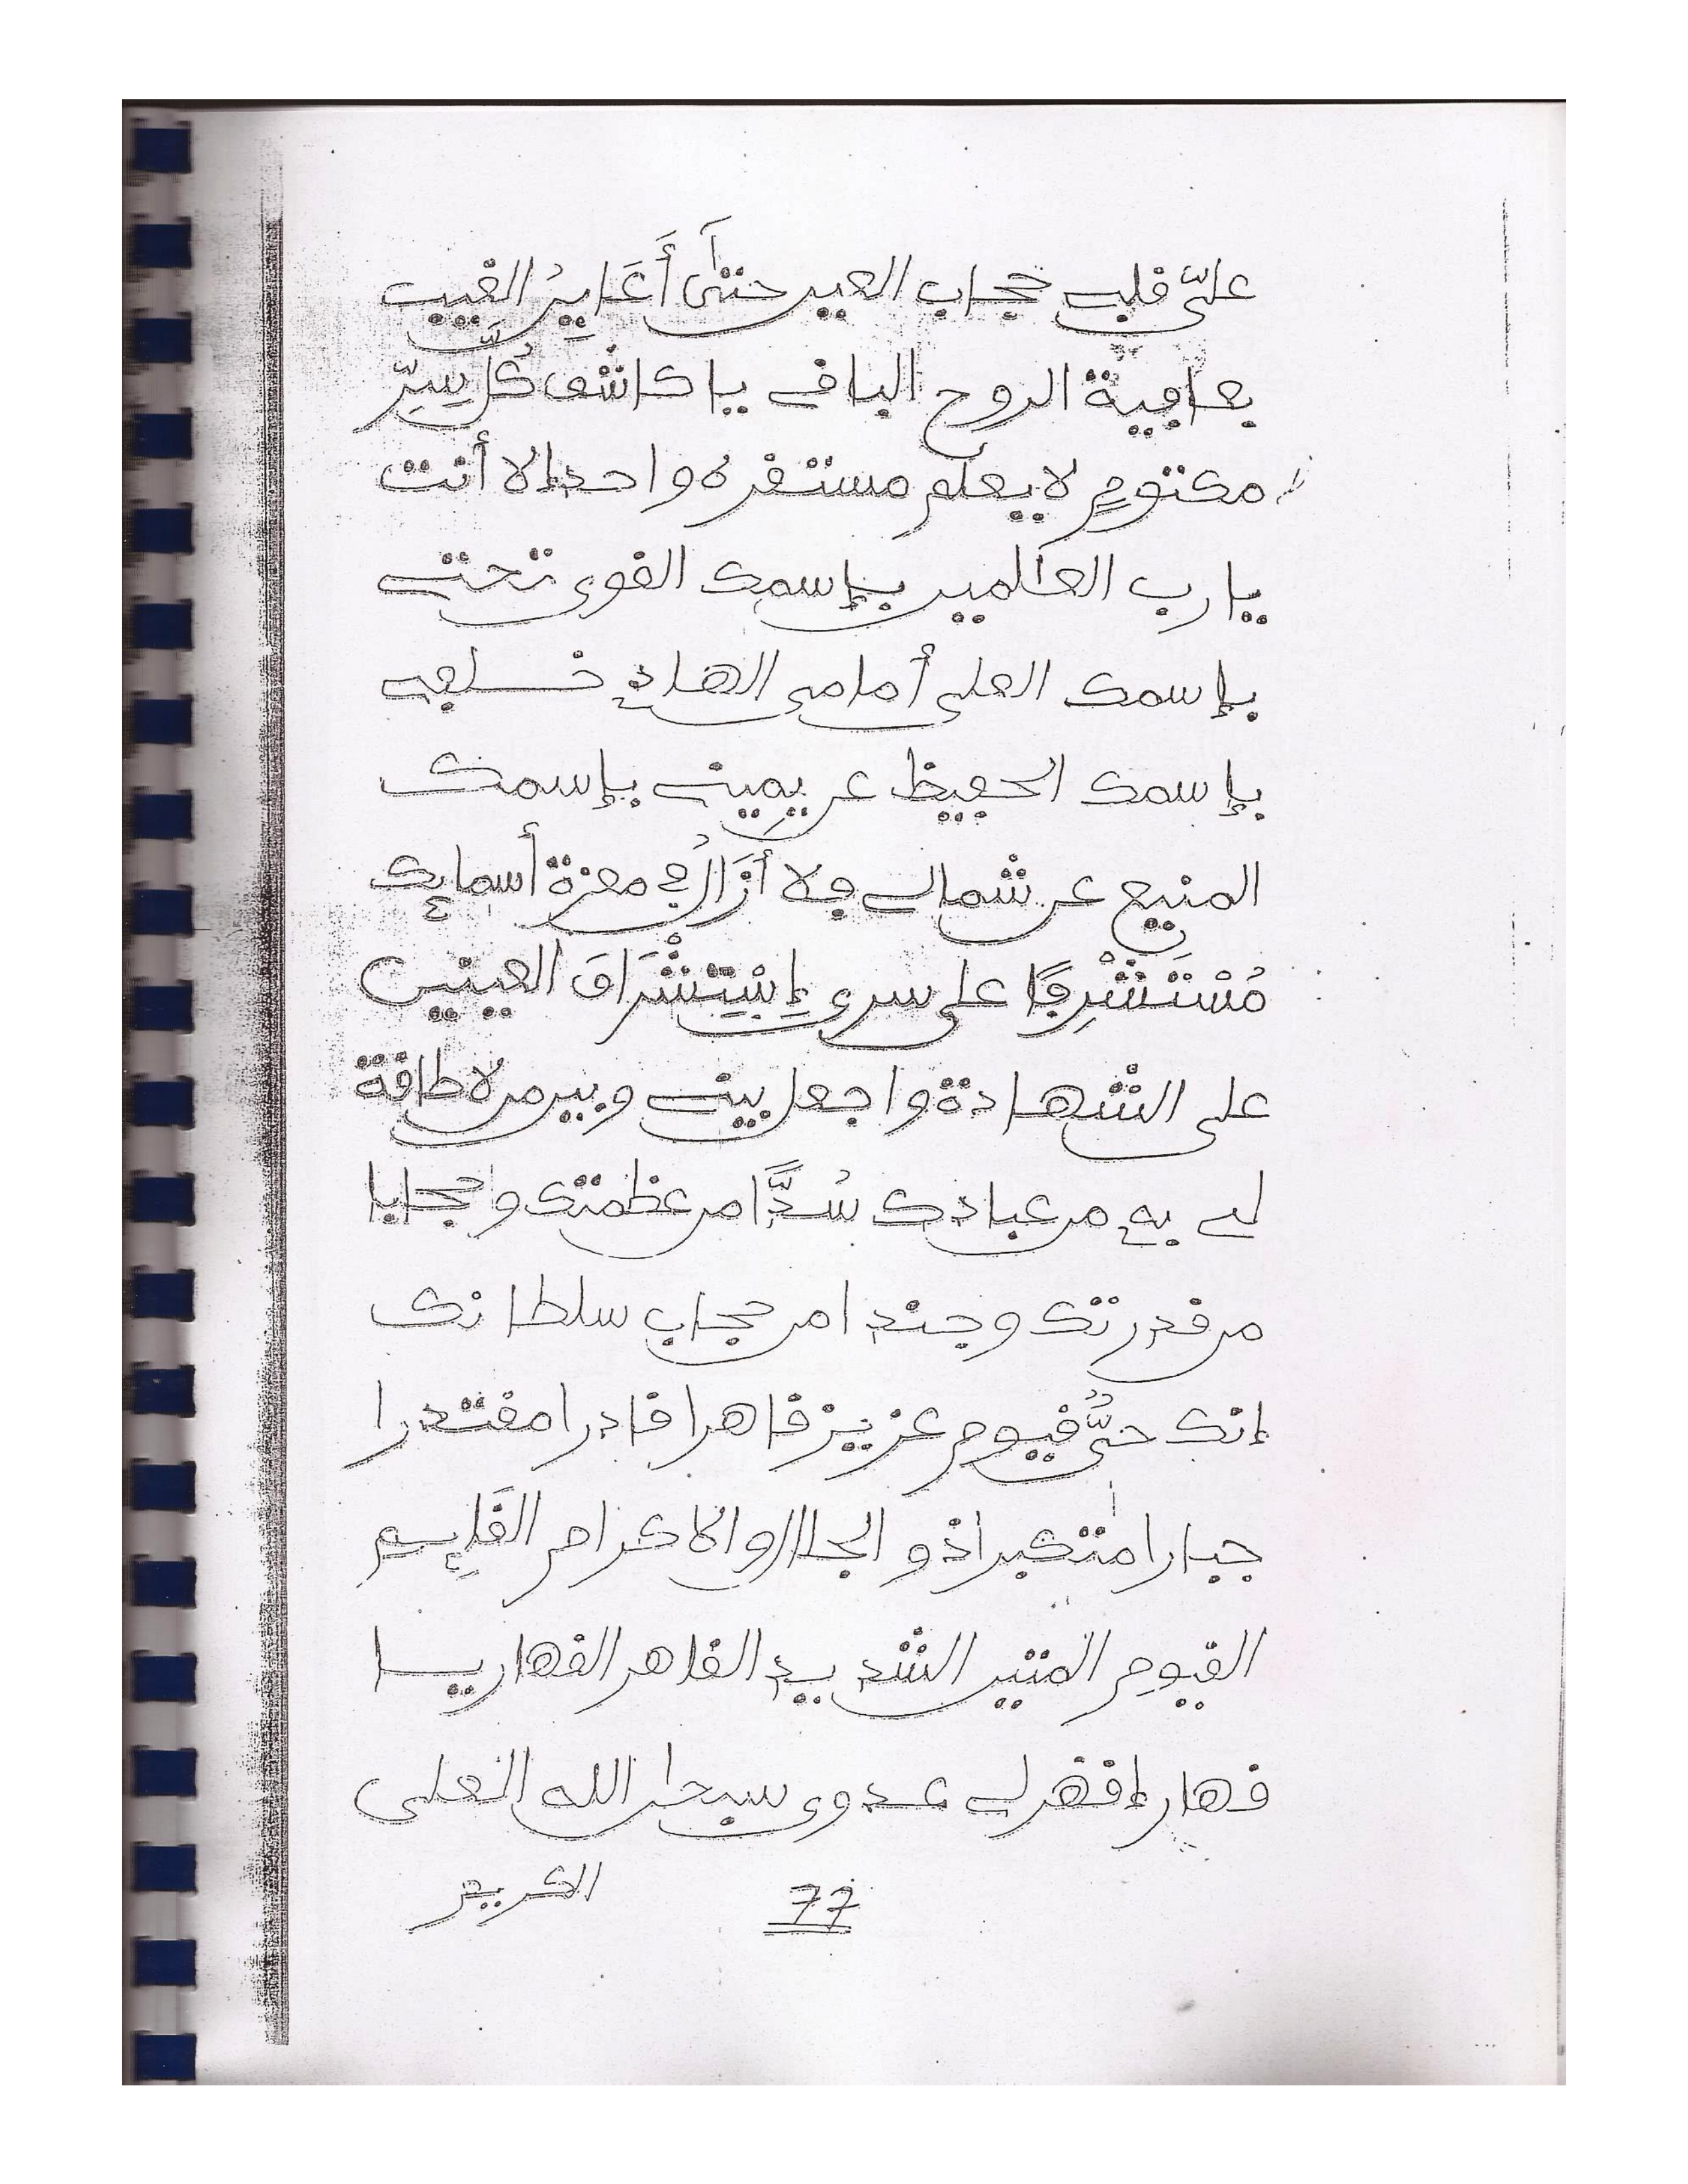 علىّ قلبي حجاب العين حتى أَعَايِنُ الغيب
بعافية الروح الباقي يا كاشف كُلَّ سِرّ
مكتومٍ لا يعلم مستقره واحد إلا أنت
يا رب العالمين بإسمك القوي تحتي
بإسمك العلي أمامي الهادي خلفي
بإسمك الحفيظ عن يميني بإسمك
المنيع عن شمالي فلا أَزَالُ في معزة أسمائك
مُسْتَشْرِفًا على سري إِسْتِشْرَافَ العينين
على الشهادة واجعل بيني وبين من لا طاقة
لي به من عبادك سُدًّا من عظمتك وحجابا
من قدرتك وجندا من حجاب سلطانك
إنك حيٌّ قيوم عزيز قاهرا قادرا مقتدرا
جبارا متكبرا ذو الجلال والاكرام القَائِم
القيوم المتين الشديد القاهر القهار يا
قهار إقهر لي عدوي سبحان الله العلي
77
الكريم